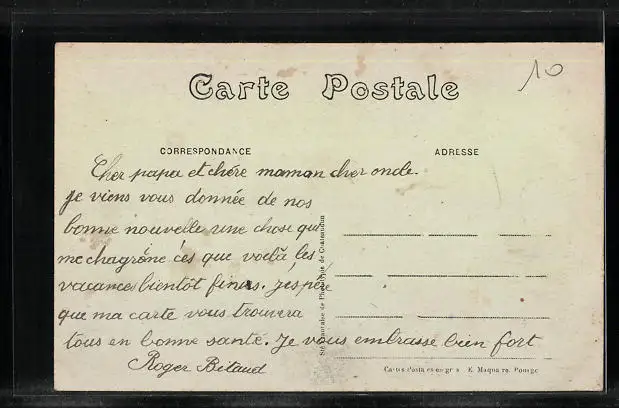 10
Carte Postale
CORRESPONDANCE
ADRESSE
Cher papa et chère maman cher oncle.
je viens vous donnée de nos
bonne nouvelle une chose qui
me chagrêne c'es que voilà les
vacances bientôt finis. j'espère
que ma carte vous trouvera
tous en bonne santé. Je vous embrasse bien fort
Roger Bitaud
Sté Française de Phototypie de
E. Maquaire